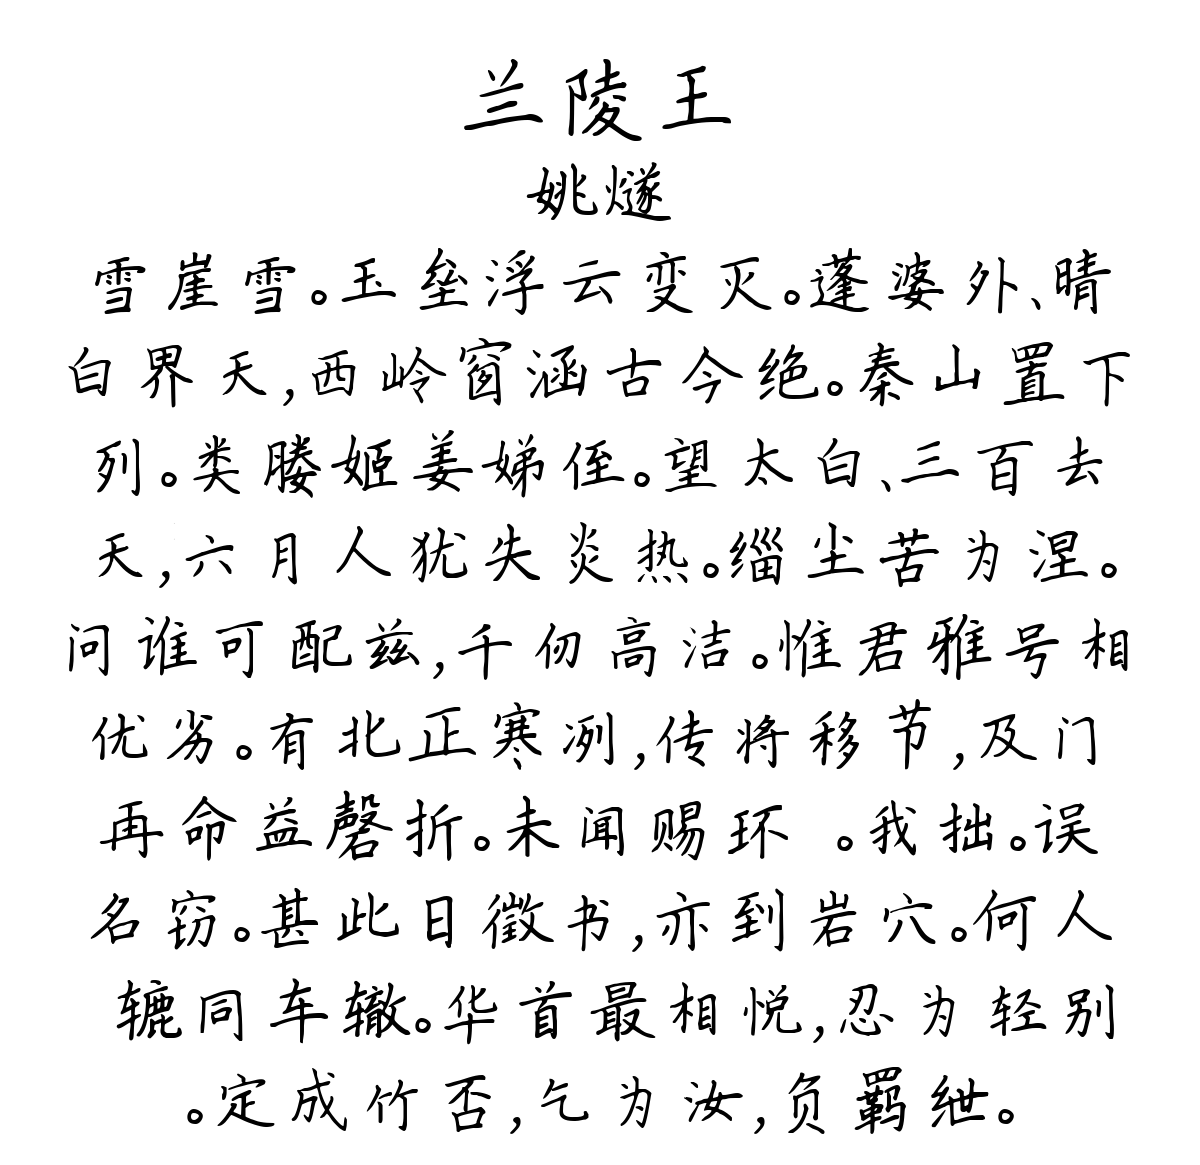 兰陵王
姚燧
雪崖雪。玉垒浮云变灭。蓬婆外、晴
白界天,西岭窗涵古今绝。秦山置下
列。类媵姬姜娣侄。望太白、三百去
天,六月人犹失炎热。缁尘苦为涅。
问谁可配兹,千仞高洁。惟君雅号相
优劣。有北正寒冽,传将移节,及门
再命益磬折。未闻赐环 。我拙。误
名窃。甚此日徵书,亦到岩穴。何人
辘同车辙。华首最相悦,忍为轻别
。定成竹否,乞为汝,负羁绁。